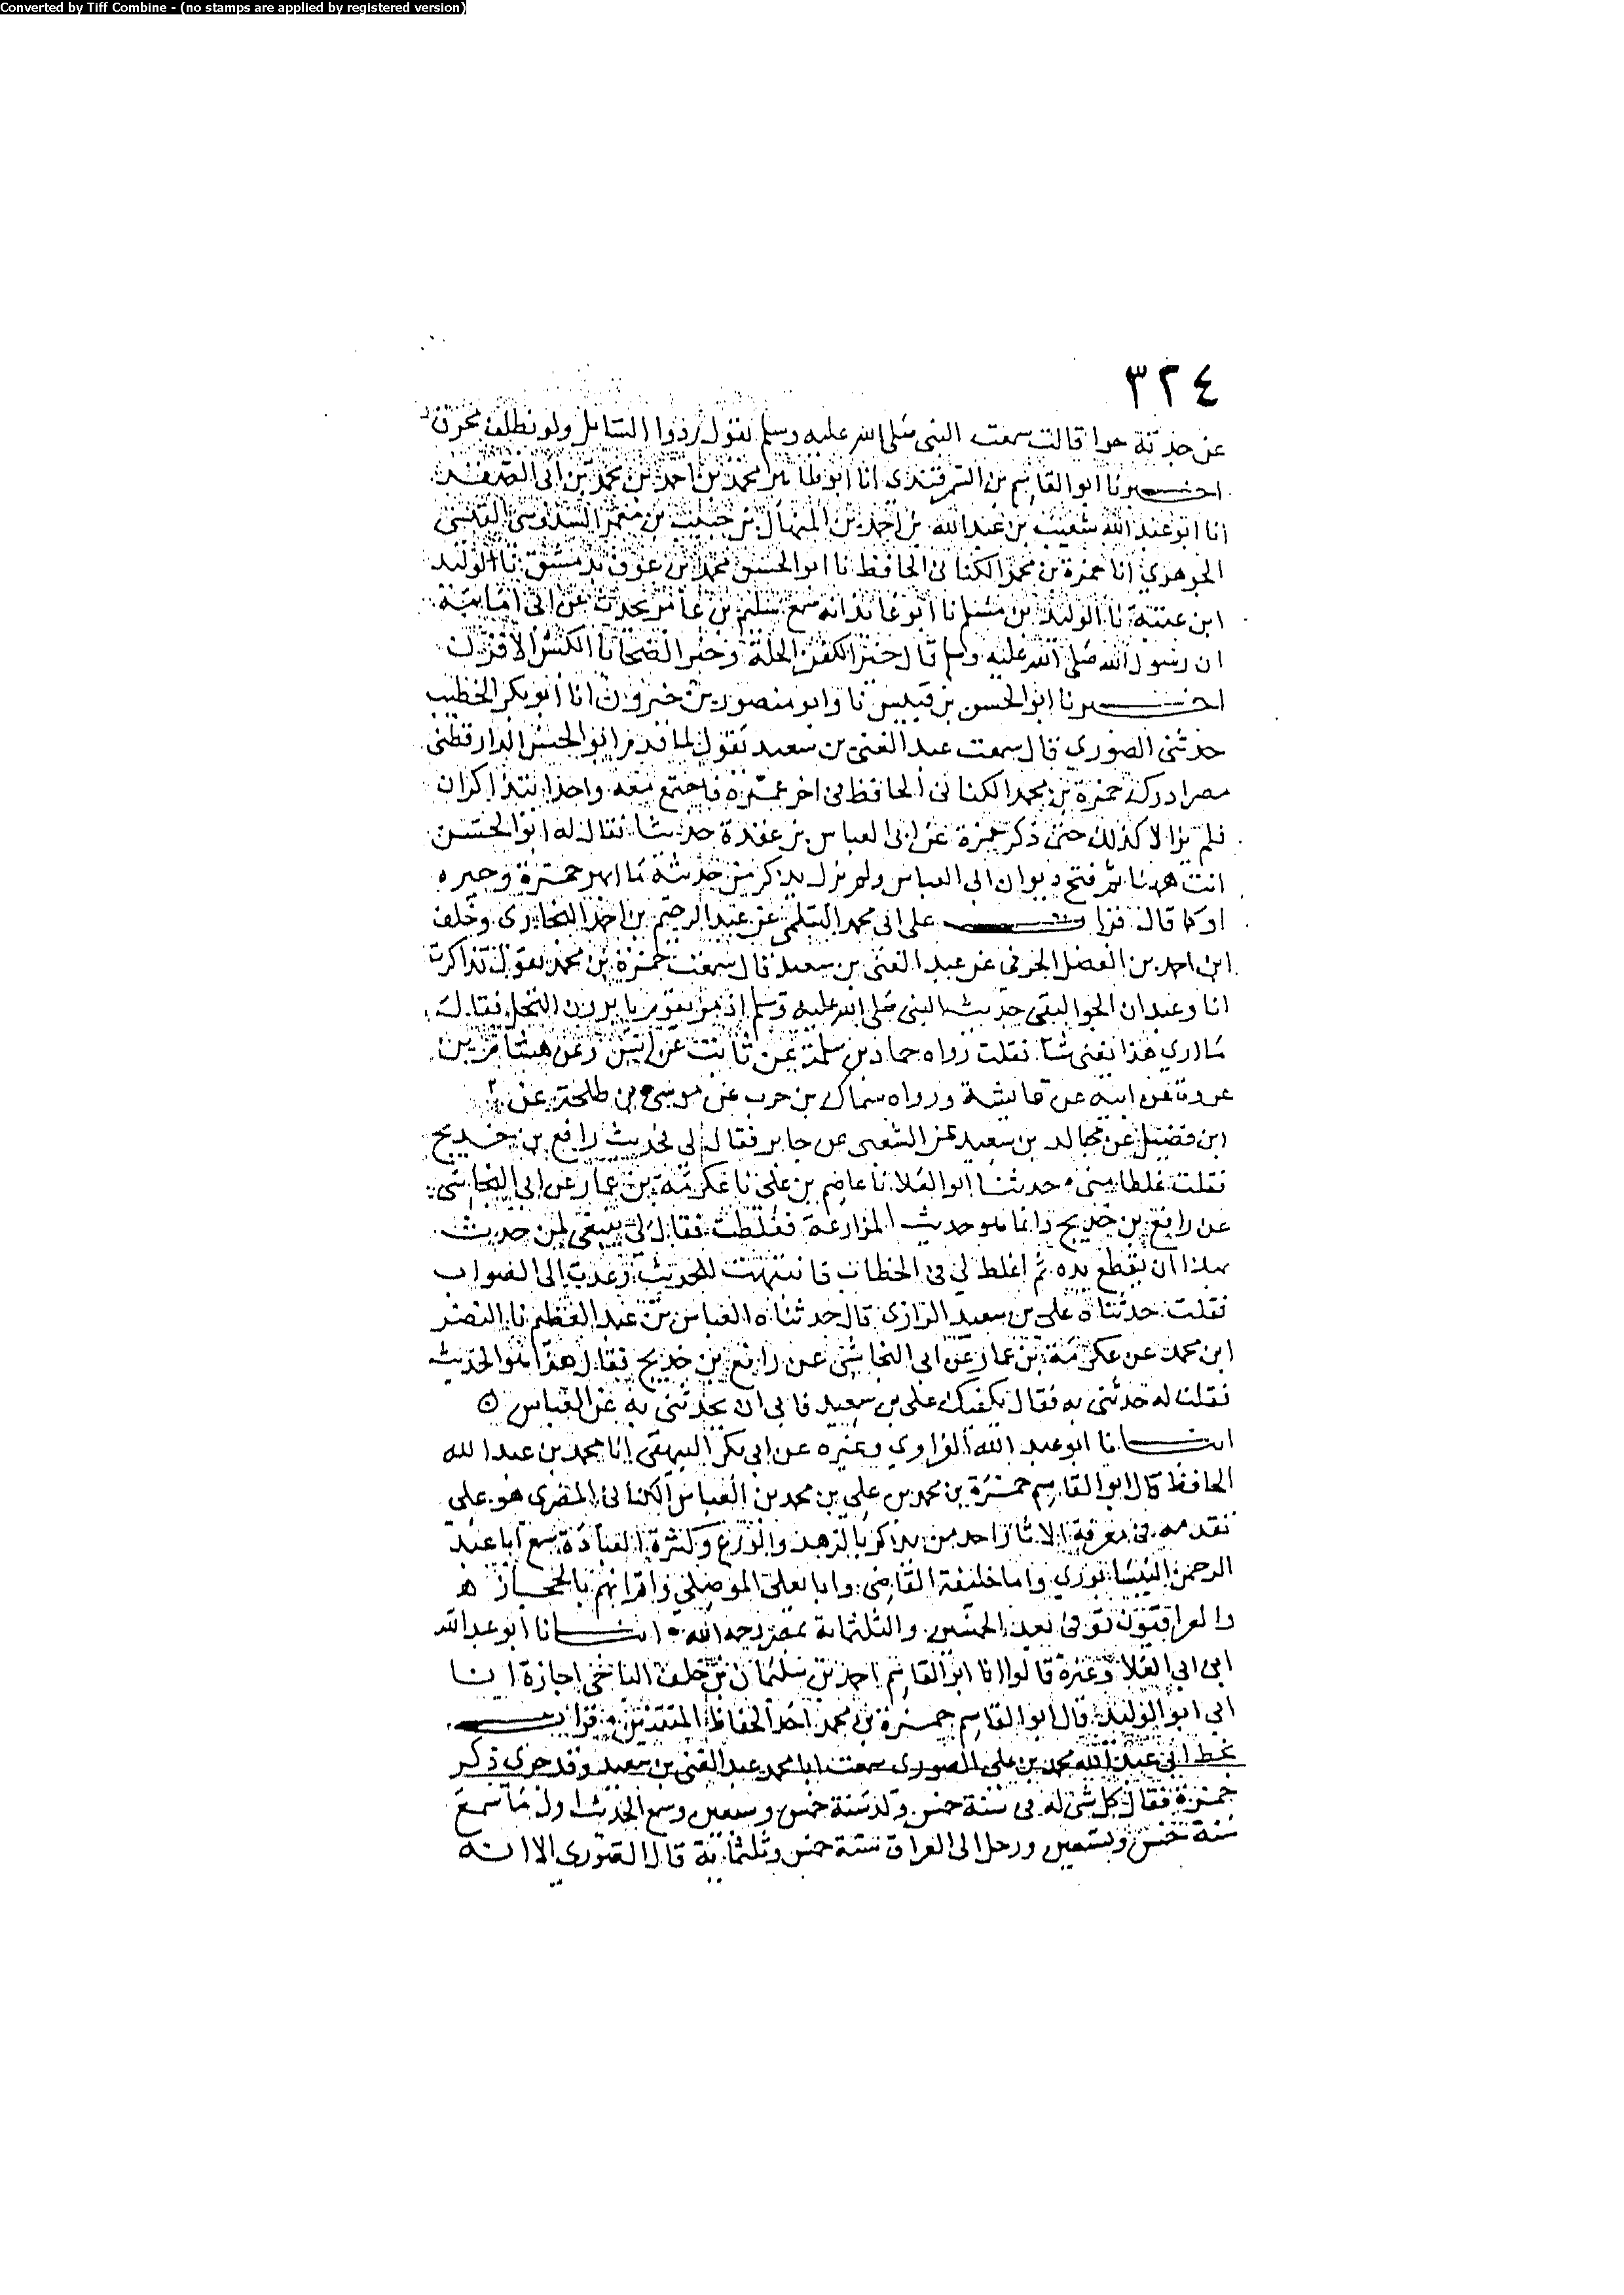 Converted by Tiff Combine - (no stamps are applied by registered version)
٣٢٤
عن جدته حوا قالت سمعت النبي صلى الله عليه وسلم يقول ردوا السائل ولو بظلف محرق
اخبرنا ابو القاسم بن السمرقندي انا ابو طاهر محمد بن احمد بن محمد بن ابي الصقر
انا ابو عبد الله شعيب بن عبد الله بن احمد بن المنهال بن حبيب بن معمر السدوسي القيسي
الجوهري انا حمزة بن محمد الكناني الحافظ نا ابو الحسن محمد بن عوف بدمشق نا الوليد
ابن عتبة نا الوليد بن مسلم نا ابو عائذ انه سمع سليم بن عامر يحدث عن ابي امامة
ان رسول الله صلى الله عليه وسلم قال خير الكفن الحلة وخير الضحايا الكبش الاقرن
اخبرنا ابو الحسن بن قبيس نا وابو منصور بن خيرون انا ابو بكر الخطيب
حدثني الصوري قال سمعت عبد الغني بن سعيد يقول لما قدم ابو الحسن الدارقطني
مصر ادرك حمزة بن محمد الكناني الحافظ في اخر عمره فاجتمع معه واخذا يتذاكران
فلم يزالا كذلك حتى ذكر حمزة عن ابي العباس بن عقدة حديثا فقال له ابو الحسن
انت هاهنا ثم فتح ديوان ابي العباس ولم يزل يذكر من حديثه ما ابهر حمزة وحيره
او كما قال قرات على ابي محمد السلمي عن عبد الرحيم بن احمد البخاري وخلف
ابن احمد بن الفضل الحوفي عن عبد الغني بن سعيد قال سمعت حمزة بن محمد يقول تذاكرت
انا وعبدان الجواليقي حديث النبي صلى الله عليه وسلم اذ مر بقوم يابرون النخل فقال
ما ارى هذا يغني شيا فقلت رواه حماد بن سلمة عن ثابت عن انس وعن هشام بن
عروة عن ابيه عن عائشة ورواه سماك بن حرب عن موسى بن طلحة عن
ابن فضيل عن مجالد بن سعيد عن الشعبي عن جابر فقال لي فحديث رافع بن خديج
فقلت غلطا مني حدثنا ابو العلا نا عاصم بن علي نا عكرمة بن عمار عن ابي النجاشي
عن رافع بن خديج وانما هو حديث المزارعة فغلطت فقال لي ينبغي لمن حديث
هذا ان يقطع يده ثم اغلظ لي في الخطاب فانتبهت للحديث وعدت الى الصواب
فقلت حدثناه علي بن سعيد الرازي قال حدثناه العباس بن عبد العظيم نا النضر
ابن محمد عن عكرمة بن عمار عن ابي النجاشي عن رافع بن خديج فقال هذا هو الحديث
فقلت له حدثني به فقال يكفيك علي بن سعيد فابى ان يحدثني به عن العباس ه
انبانا ابو عبد الله الفراوي وغيره عن ابي بكر البيهقي انا محمد بن عبد الله
الحافظ قال ابو القاسم حمزة بن محمد بن علي بن محمد بن العباس الكناني المصري هو على
تقدمه في معرفة الاثار احد من يذكر بالزهد والورع وكثرة العبادة سمع ابا عبد
الرحمن النيسابوري وابا خليفة القاضي وابا يعلى الموصلي واقرانهم بالحجاز ه
والعراقيون توفي بعد الخمسين والثلثماية بمصر رحمه الله انبانا ابو عبد الله
ابن ابي العلا وغيره قالوا انا ابو القاسم احمد بن سليمان بن خلف الباجي اجازة انبا
ابي ابو الوليد قال ابو القاسم حمزة بن محمد احد الحفاظ المتقنين قرات
بخط ابي عبد الله محمد بن علي الصوري سمعت ابا محمد عبد الغني بن سعيد وقد جرى ذكر
حمزة فقال كل شي له في سنة خمس ولد سنة خمس وسبعين وسمع الحديث اول ما سمع
سنة خمس وتسعين ورحل الى العراق سنة خمس وثلثماية قال الصوري الا انه